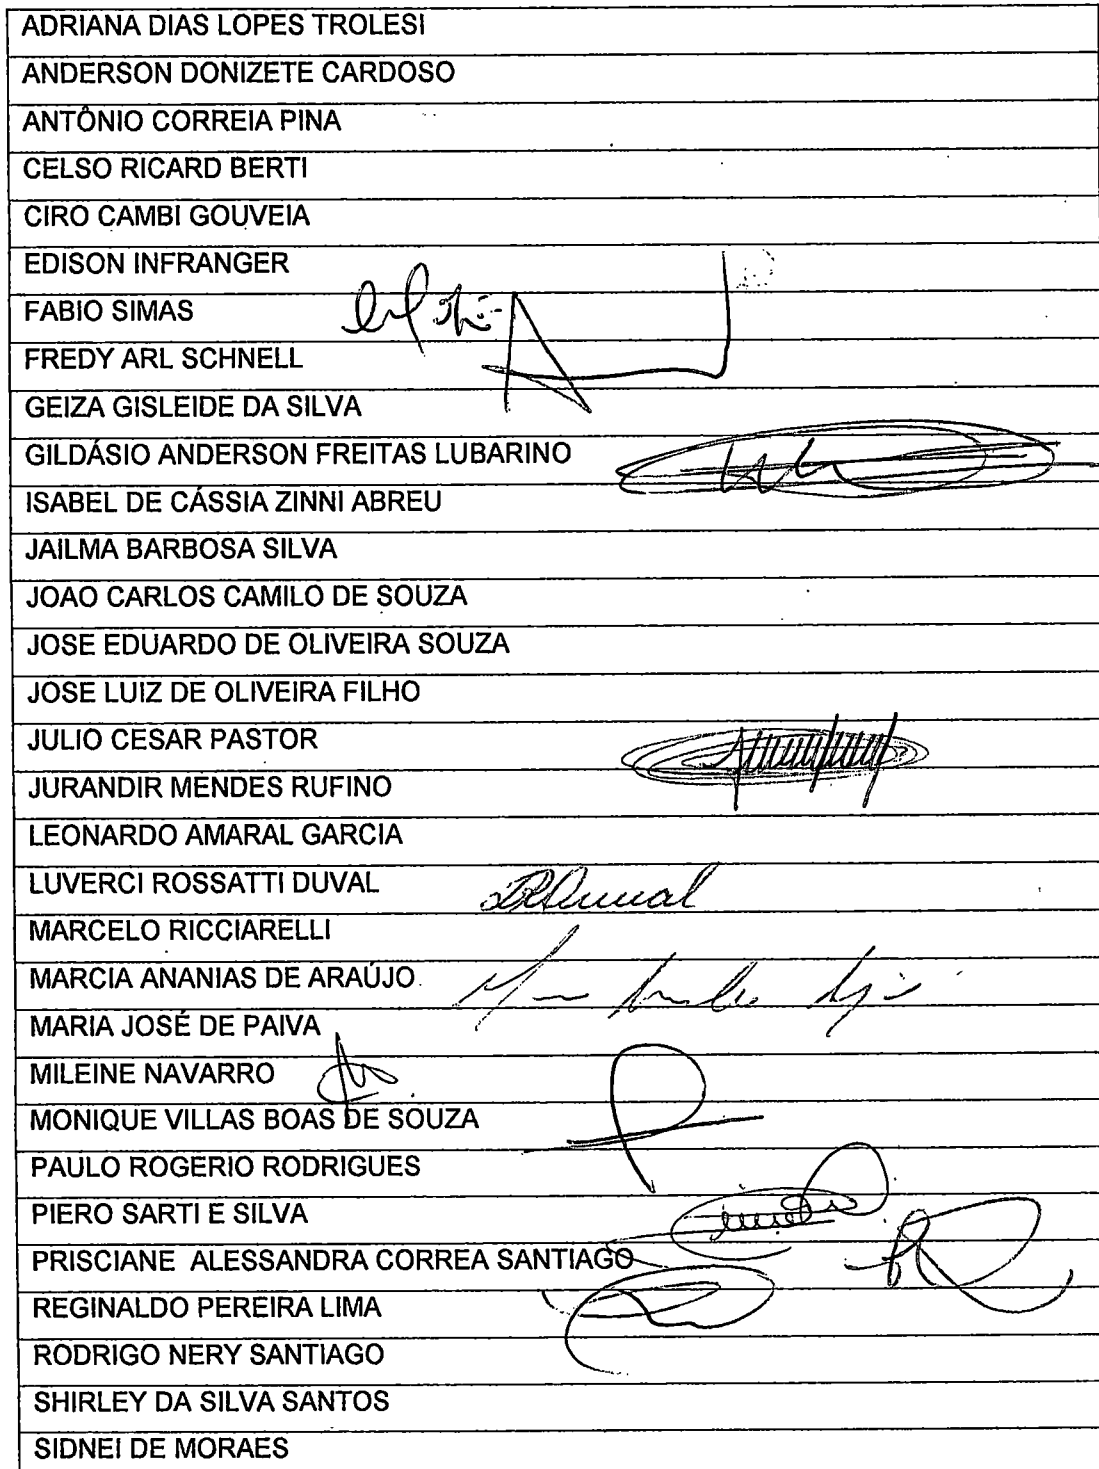 ADRIANA DIAS LOPES TROLESI
ANDERSON DONIZETE CARDOSO
ANTÔNIO CORREIA PINA
CELSO RICARD BERTI
CIRO CAMBI GOUVEIA
EDISON INFRANGER
FABIO SIMAS
FREDY ARL SCHNELL
GEIZA GISLEIDE DA SILVA
GILDÁSIO ANDERSON FREITAS LUBARINO
ISABEL DE CÁSSIA ZINNI ABREU
JAILMA BARBOSA SILVA
JOAO CARLOS CAMILO DE SOUZA
JOSE EDUARDO DE OLIVEIRA SOUZA
JOSE LUIZ DE OLIVEIRA FILHO
JULIO CESAR PASTOR
JURANDIR MENDES RUFINO
LEONARDO AMARAL GARCIA
LUVERCI ROSSATTI DUVAL
MARCELO RICCIARELLI
MARCIA ANANIAS DE ARAÚJO
MARIA JOSÉ DE PAIVA
MILEINE NAVARRO
MONIQUE VILLAS BOAS DE SOUZA
PAULO ROGERIO RODRIGUES
PIERO SARTI E SILVA
PRISCIANE ALESSANDRA CORREA SANTIAGO
REGINALDO PEREIRA LIMA
RODRIGO NERY SANTIAGO
SHIRLEY DA SILVA SANTOS
SIDNEI DE MORAES